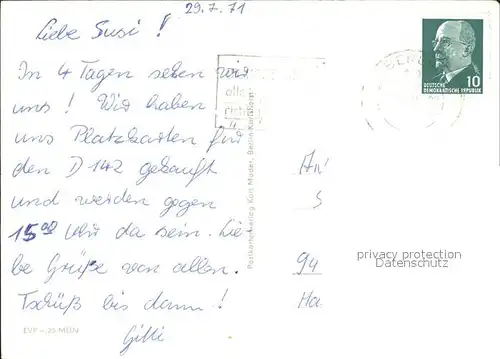 29.7.71
Liebe Susi!
In 4 Tagen sehen wir
uns! Wir haben
uns Platzkarten für
den D 142 gekauft
und werden gegen
15⁰⁰ Uhr da sein. Lie-
be Grüße von allen.
Tschüß bis dann!
Gitti
EVP -,25 MDN
Postkartenverlag Kurt Mader, Berlin-Karlshorst
BERLIN
10
DEUTSCHE
DEMOKRATISCHE REPUBLIK
An
94
privacy protection
Datenschutz